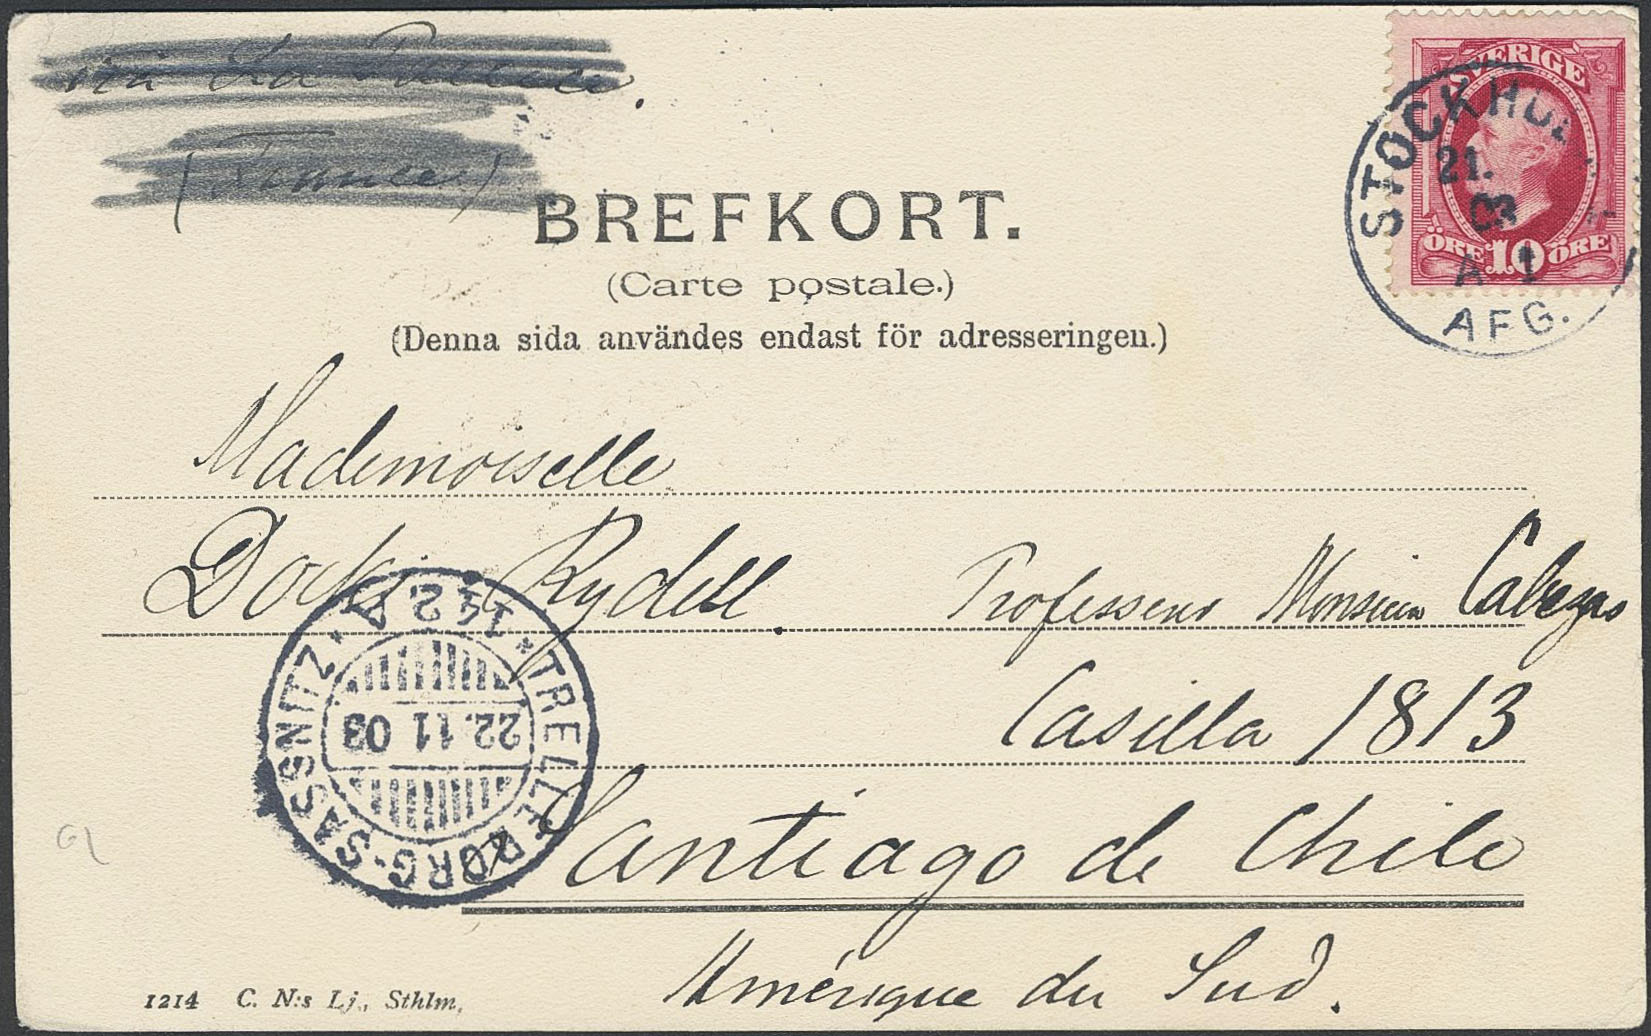 via La Pallice.
(France)
SVERIGE
ÖRE 10 ÖRE
STOCKHOLM
21.
03
A 1
AFG.
BREFKORT.
(Carte postale.)
(Denna sida användes endast för adresseringen.)
Mademoiselle
Rydell. Professeur Monsieur Cabezas
Casilla 1813
Santiago de Chile
Amérique du Sud.
TRELLEBORG-SASSNITZ
142 A
22.11 03
1214 C. N:s Lj., Sthlm.